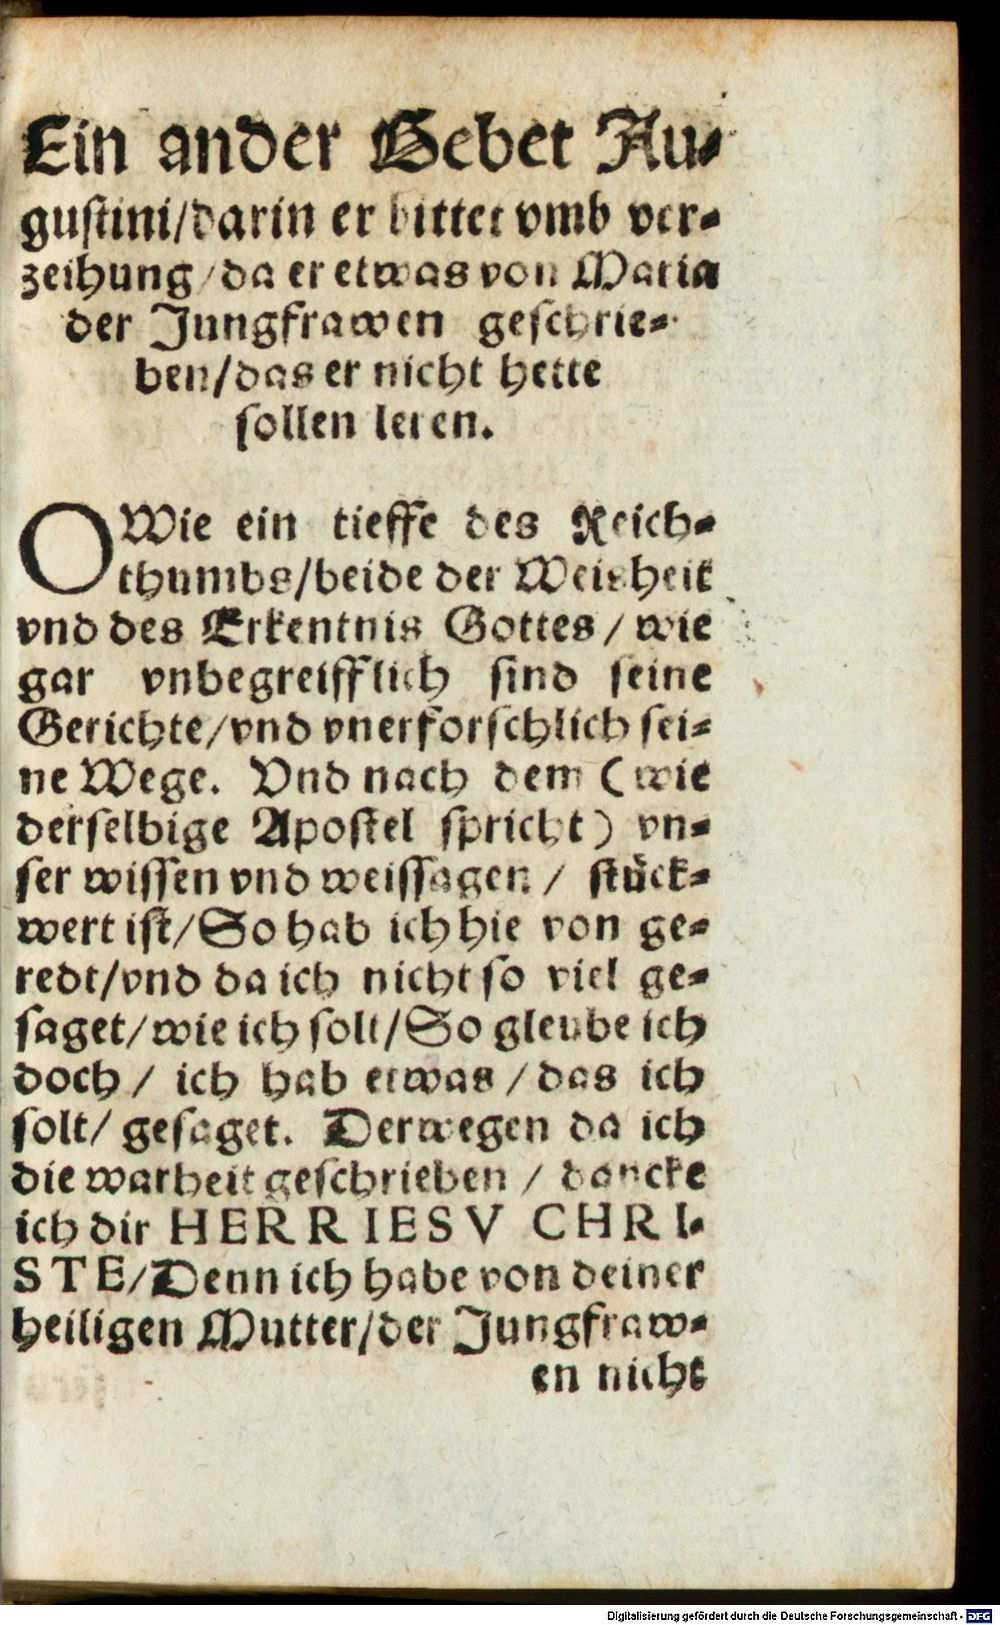 Ein ander Gebet Au-
gustini/darin er bittet vmb ver-
zeihung/da er etwas von Maria
der Jungfrawen geschrie-
ben/das er nicht hette
sollen leren.
O Wie ein tieffe des Reich-
thumbs/beide der Weisheit
vnd des Erkentnis Gottes/wie
gar vnbegreifflich sind seine
Gerichte/vnd vnerforschlich sei-
ne Wege. Vnd nach dem (wie
derselbige Apostel spricht) vn-
ser wissen vnd weissagen/ stück-
wert ist/So hab ich hie von ge-
redt/vnd da ich nicht so viel ge-
saget/wie ich solt/So gleube ich
doch/ ich hab etwas/das ich
solt/ gesaget. Derwegen da ich
die warheit geschrieben/ dancke
ich dir HERR IESV CHRI-
STE/Denn ich habe von deiner
heiligen Mutter/der Jungfraw-
en nicht
Digitalisierung gefördert durch die Deutsche Forschungsgemeinschaft - DFG